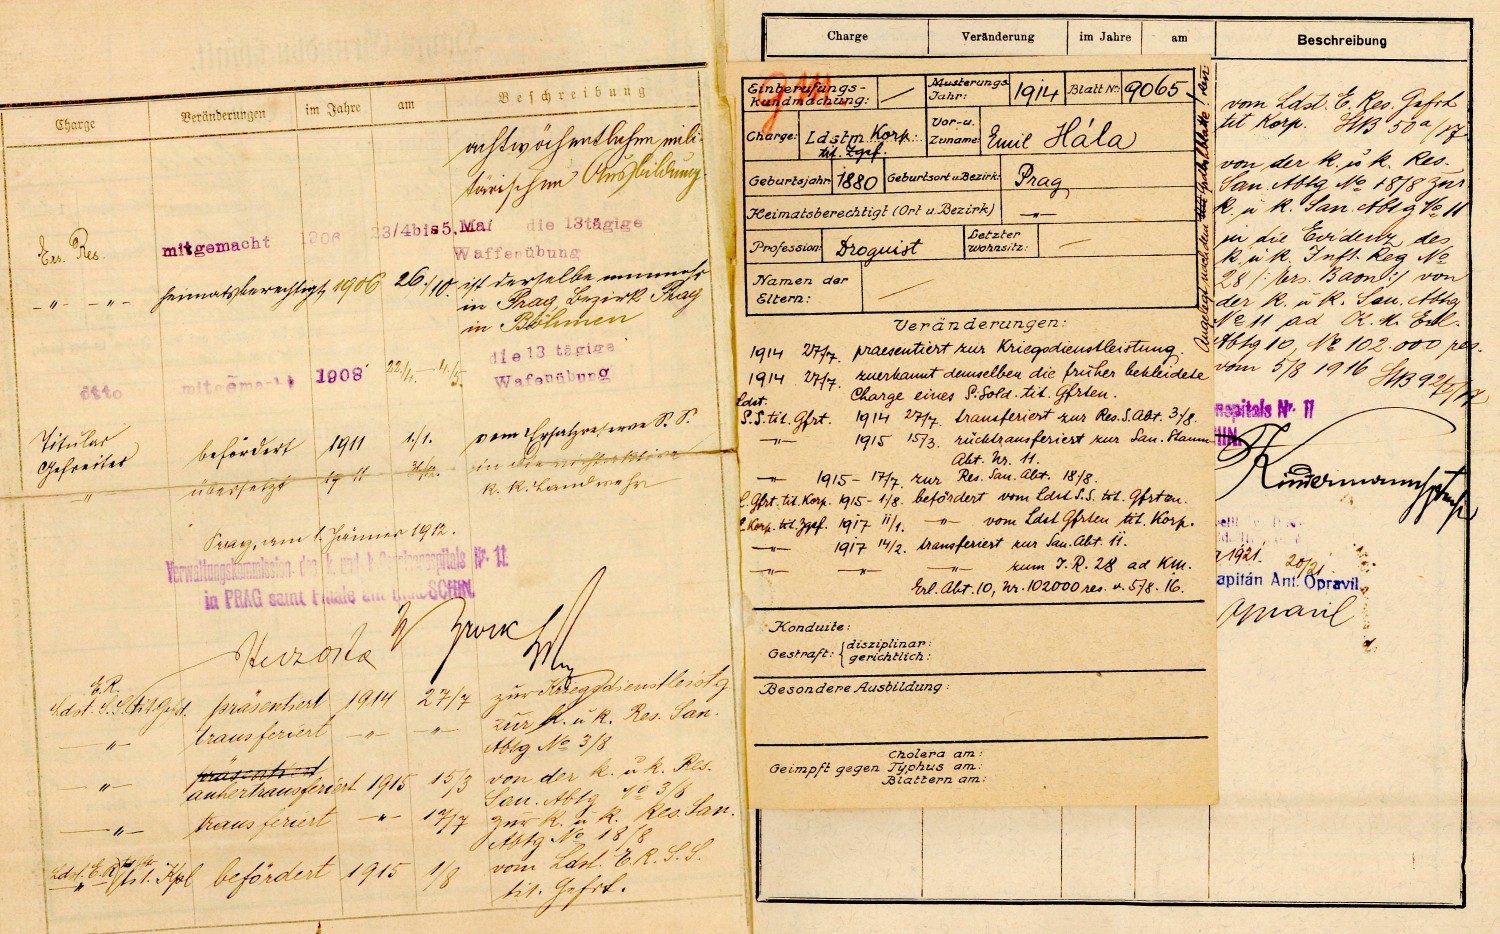 Charge Veränderungen im Jahre am Beschreibung
achtwöchentlichen mili-
tärischen Ausbildung.
Ers. Res. mitgemacht 1906 23/4 bis 5. Mai die 13tägige
Waffenübung
-"- -"- heimatsberechtigt 1906 26./10. ist derselbe nunmehr
in Prag Bezirk Prag
in Böhmen
die 13 tägige
ditto mitgemacht 1908 22/4.-4/5. Wafenübung
Titular
Gefreiter befördert 1911 1./1. vom Ersatzreserve S. S.
-"- übersetzt 1911 31/12. in die
k. k. Landwehr
Prag, am 1. Jänner 1912.
Verwaltungskommission des k. und k. Nr. 11.
in PRAG samt Filiale am HradSCHIN.
E. R.
Ldst. S. S. tit. Gefrt. präsentiert 1914 27/7 zur Kriegsdienstleistg
-"- transferiert -"- -"- zur k. u. k. Res. San.
Abtg No 3/8
präsentiert
-"- anhertransferiert 1915 15/3 von der k. u. k. Res.
San. Abtg No 3/8
-"- transferiert -"- 17/7 zur k. u. k. Res. San.
Abtg No 18/8
Ldst. E. R. tit. Kpl befördert 1915 1/8 vom Ldst. E. R. S. S.
tit. Gefrt.
Charge Veränderung im Jahre am Beschreibung
Einberufungs-
kundmachung: — Musterungs-
Jahr: 1914 Blatt Nr: 9065
Charge: Ldstm. Korp.
tit. Zgsf. Vor- u.
Zuname: Emil Hála
Geburtsjahr: 1880 Geburtsort u. Bezirk: Prag
Heimatsberechtigt (Ort u. Bezirk) -"-
Profession: Droguist Letzter
Wohnsitz: —
Namen der
Eltern: —
Angelegt nach dem
Veränderungen:
1914 27/7. praesentiert zur Kriegsdienstleistung.
1914 27/7. zuerkannt demselben die früher bekleidete
Charge eines S. Sold. tit. Gfrten.
Ldst.
S. S. tit. Gfrt. 1914 27/7. transferiert zur Res. S. Abt. 3/8.
-"- 1915 15/3. rücktransferiert zur San. Stamm-
Abt. Nr. 11.
-"- 1915 - 17/7. zur Res. San. Abt. 18/8.
L. Gfrt. tit. Korp. 1915 - 1/8. befördert vom Ldst S. S. tit. Gfrten.
L. Korp. tit. Zgsf. 1917 1/1. -"- vom Ldst Gfrten tit. Korp.
-"- 1917 14/2. transferiert zur San. Abt. 11.
-"- -"- -"- zum I. R. 28 ad KM.
Erl. Abt. 10, Nr. 102000 res. v. 5/8. 16.
Konduite:
Gestraft: { disziplinar:
gerichtlich:
Besondere Ausbildung:
Geimpft gegen Cholera am:
Typhus am:
Blattern am:
vom Ldst. E. Res. Gefrt
tit Korp. 50a/17.
von der k. u. k. Res.
San. Abtg No 18/8 zur
k. u. k. San. Abtg No 11
in die Evidenz des
k. u. k. Inft. Reg No
28 /: Ers. Baon :/ von
der k. u. k. San. Abtg
No 11 ad K. M. Erl.
Abtg 10, No 102.000 res.
vom 5/8 1916
nspitals Nr. 11
HIN.
1921. 20/21
apitán Ant. Opravil
Opravil